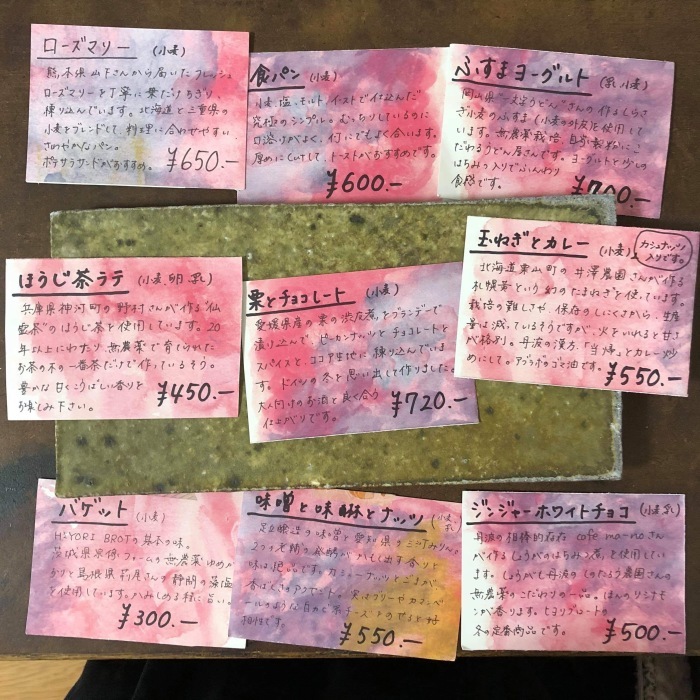 ローズマリー (小麦)
熊本県山下さんから届いたフレッシュ
ローズマリーを丁寧に葉だけちぎり
練り込んでいます。北海道と三重県の
小麦をブレンドして、料理に合わせやすい
さわやかなパン。
ポテサラサンドがおすすめ。
¥650.-
食パン (小麦)
小麦、塩、モルト、イーストで仕込んだ
究極のシンプル。むっちりしているのに
口溶けがよく、何にでもよく合います。
厚めにcutして、トーストがおすすめです。
¥600.-
ふすまヨーグルト (乳、小麦)
岡山県一文字うどんさんの作るしらさ
ぎ小麦のふすま(小麦の外皮)を使用して
います。無農薬栽培、自家製粉にこ
だわるうどん屋さんです。ヨーグルトと少しの
はちみつ入りでふんわり
食感です。
¥700.-
ほうじ茶ラテ (小麦、卵、乳)
兵庫県神河町の野村さんが作る"仙
霊茶"のほうじ茶を使用しています。20
年以上にわたり、無農薬で育てられた
お茶の木の一番茶だけで作っているそう。
豊かな甘くこうばしい香りを
お楽しみ下さい。
¥450.-
栗とチョコレート (小麦)
愛媛県産の栗の渋皮煮をグランデーで
漬り込んで、ピーカンナッツとチョコレートと
スパイスと、ココア生地に練り込んでいま
す。ドイツの冬を思い出して作りました。
大人向けのお酒と良く合う
仕上がりです。
¥720.-
玉ねぎとカレー (小麦)
カシューナッツ
入りです。
北海道栗山町の井澤農園さんが作る
札幌黄という幻のたまねぎを使っています。
栽培の難しさや、保存のしにくさから、生産
量は減っているそうですが、火をいれると甘さ
が格別。丹波の漢方、「当帰」とカレー炒
めにして。アブラボのごま油です。
¥550.-
バゲット (小麦)
HIYORI BROTの基本の味。
茨城県 ファームの無農薬ゆめか
おりと島根県 さんの静間の藻塩
を使用しています。ハみしめる様に旨い。
¥300.-
味噌と味醂とナッツ (小麦、乳)
足立醸造の味噌と愛知県の みりん。
2つの老舗の発酵が かもし出す香りと
味は絶品です。カシューナッツとごまが、
香ばしさのアクセント。実はブリーやカマンベ
ールのような白カビ系チーズとのせると好
相性です。
¥550.-
ジンジャーホワイトチョコ (小麦、乳)
丹波の姐姉的存在 cafe ma-noさん
が作るしょうがのはちみつ煮を使用してい
ます。しょうがも丹波の しのたろう農園さんの
無農薬のこだわりの一品。ほんのりシナモ
ンが香ります。ヒヨリブロートの
冬の定番商品です。
¥500.-